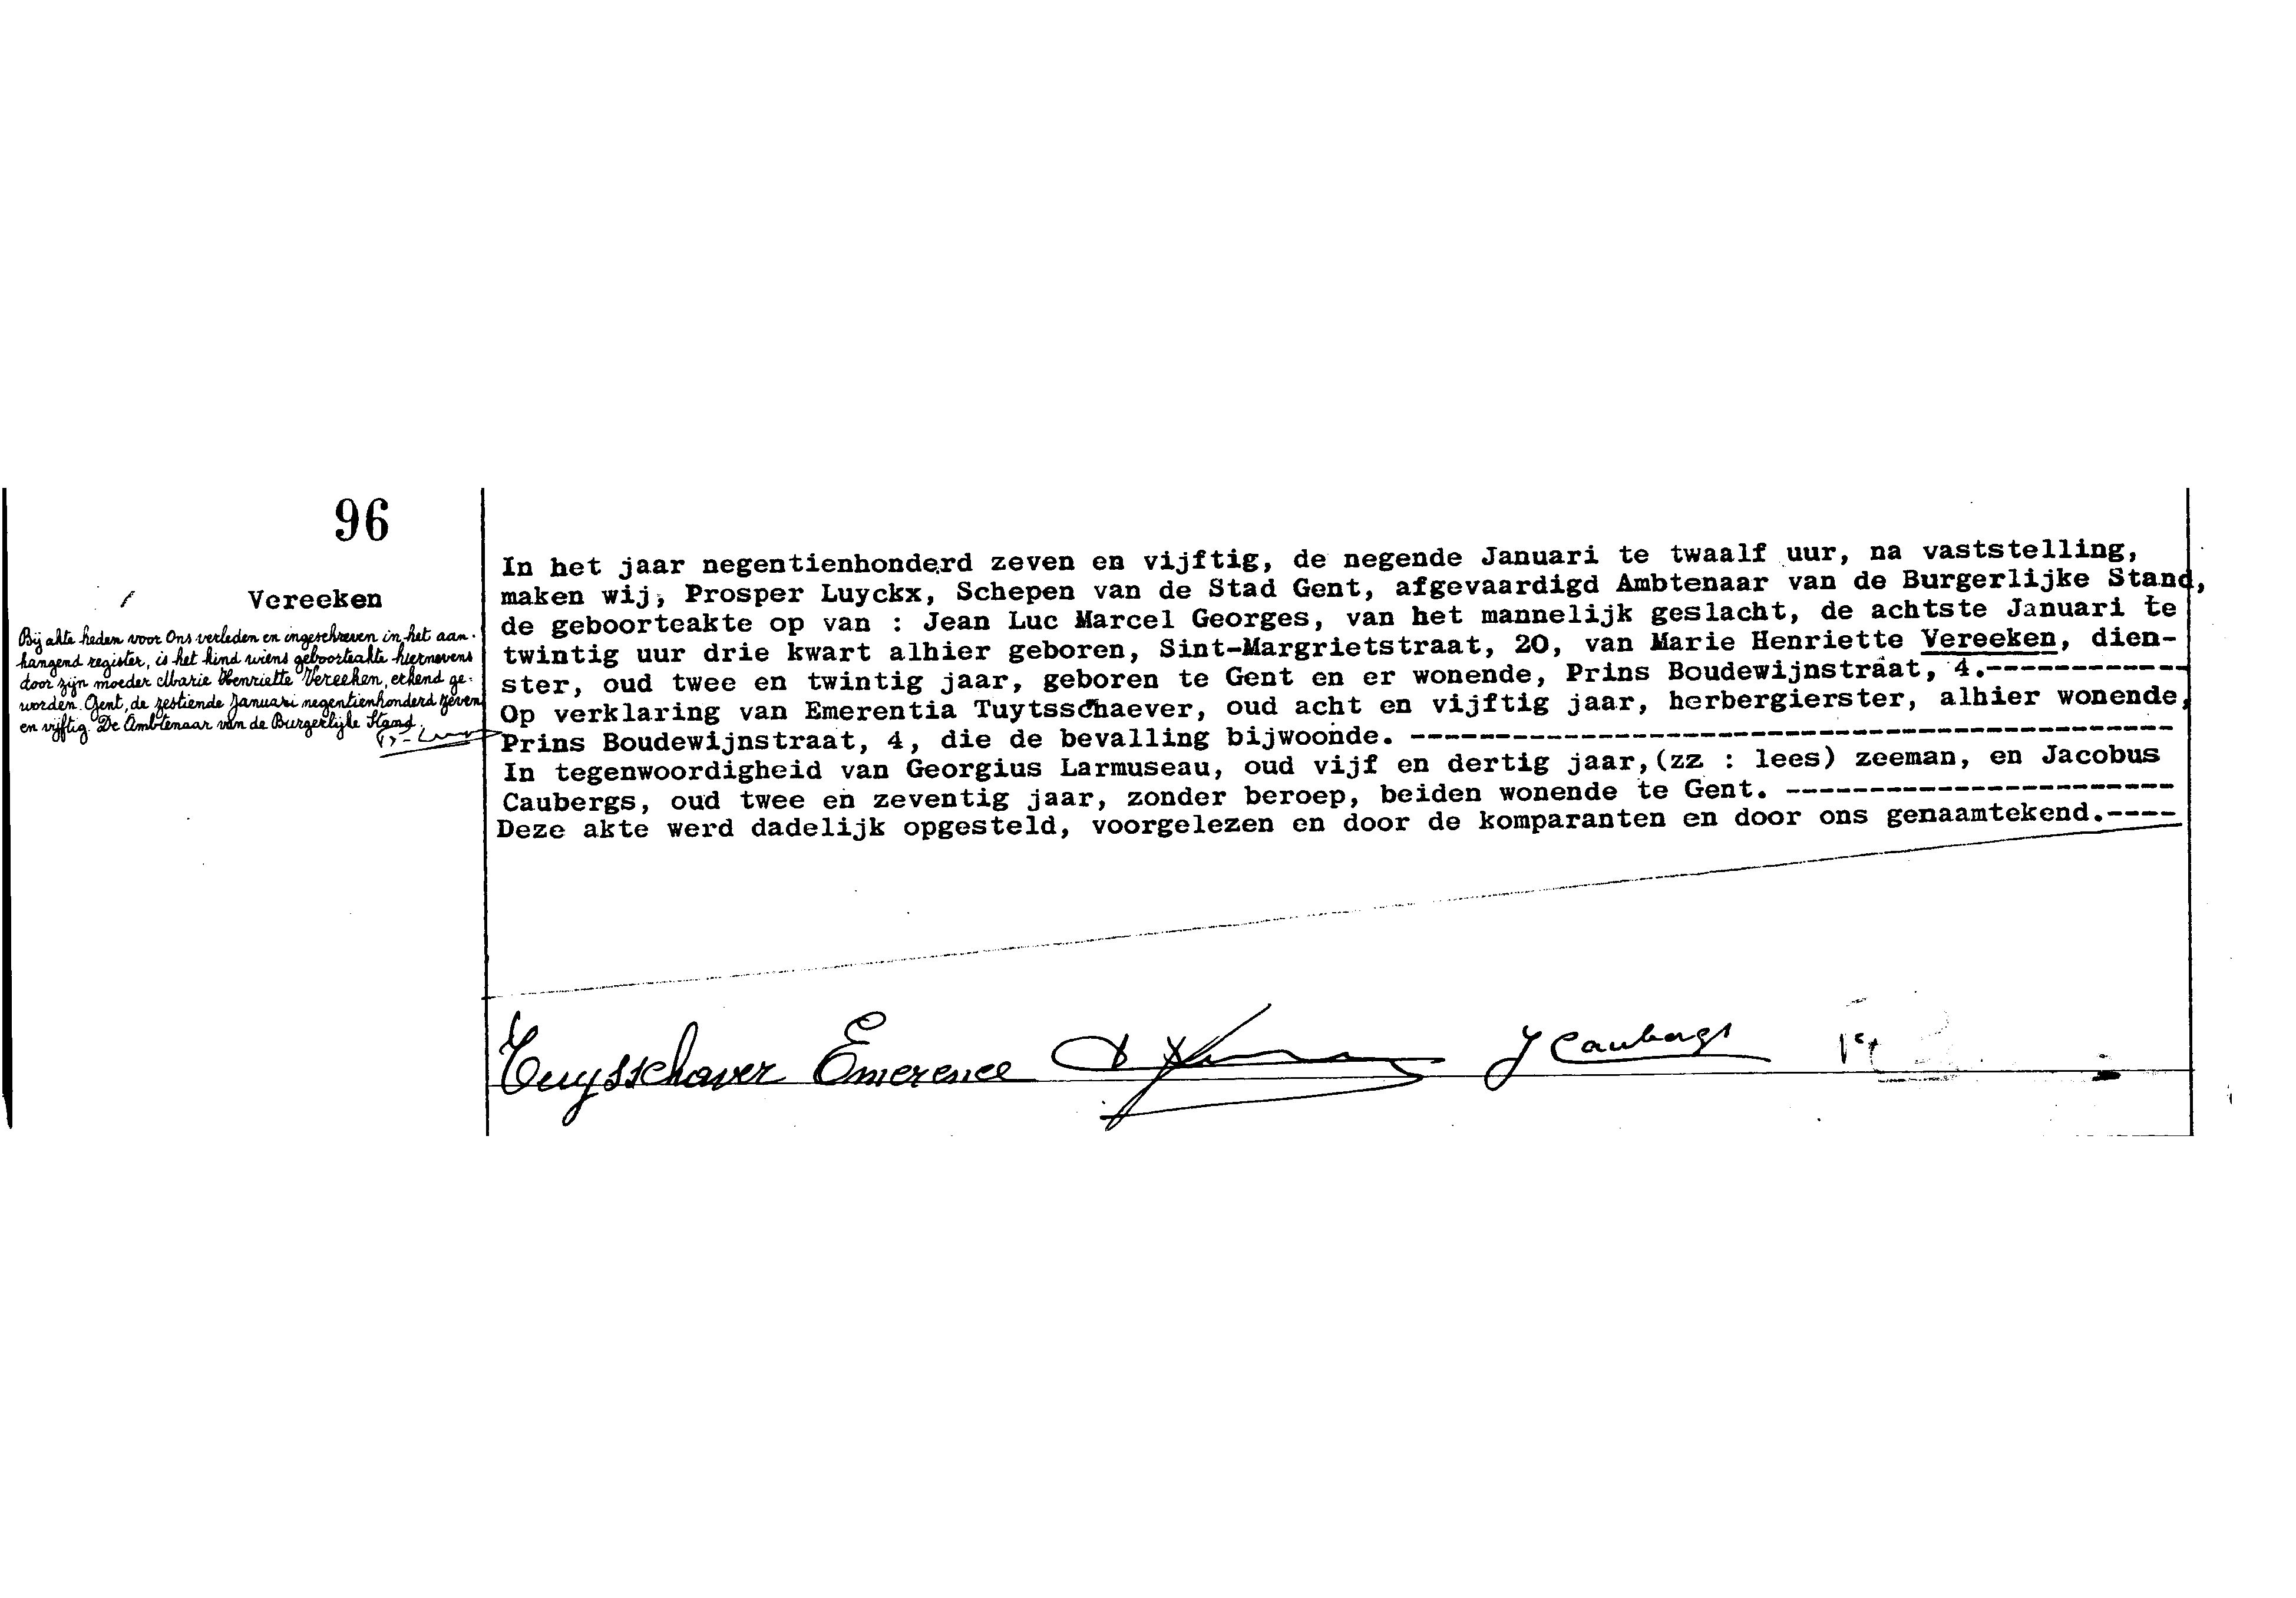 96
Vereeken
Bij akte heden voor Ons verleden en ingeschreven in het aan-
hangend register, is het kind wiens geboorteakte hiernevens
door zijn moeder Marie Henriette Vereeken, erkend ge-
worden. Gent, de zestiende Januari negentienhonderd zeven
en vijftig. De Ambtenaar van de Burgerlijke Stand.
In het jaar negentienhonderd zeven en vijftig, de negende Januari te twaalf uur, na vaststelling,
maken wij, Prosper Luyckx, Schepen van de Stad Gent, afgevaardigd Ambtenaar van de Burgerlijke Stand,
de geboorteakte op van : Jean Luc Marcel Georges, van het mannelijk geslacht, de achtste Januari te
twintig uur drie kwart alhier geboren, Sint-Margrietstraat, 20, van Marie Henriette Vereeken, dien-
ster, oud twee en twintig jaar, geboren te Gent en er wonende, Prins Boudewijnstraat, 4.------------
Op verklaring van Emerentia Tuytsschaever, oud acht en vijftig jaar, herbergierster, alhier wonende,
Prins Boudewijnstraat, 4, die de bevalling bijwoonde. ---------------------------------------------
In tegenwoordigheid van Georgius Larmuseau, oud vijf en dertig jaar,(zz : lees) zeeman, en Jacobus
Caubergs, oud twee en zeventig jaar, zonder beroep, beiden wonende te Gent. -----------------------
Deze akte werd dadelijk opgesteld, voorgelezen en door de komparanten en door ons genaamtekend.----
Tuysschaver Emerence J Caubergs